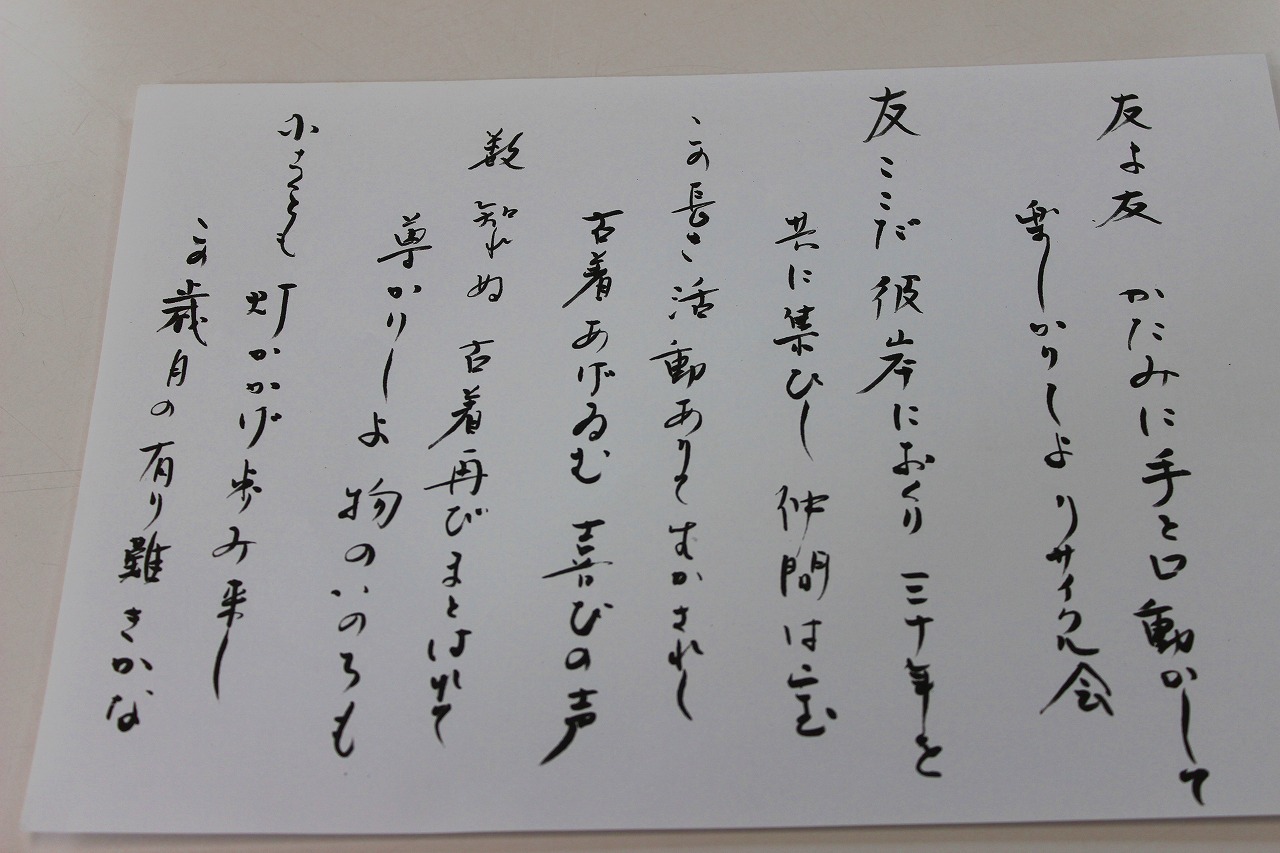 友よ友 かたみに手と口動かして
楽しかりしよ リサイクル会
友ここだ 彼岸におくり 三十年を
共に集ひし 仲間は宝
この長き活動ありて
古着あげゐむ 喜びの声
数知れぬ 古着再びまとはれて
尊かりしよ 物のいのちも
小さくとも 灯かかげ歩み来し
この歳月の有り難きかな